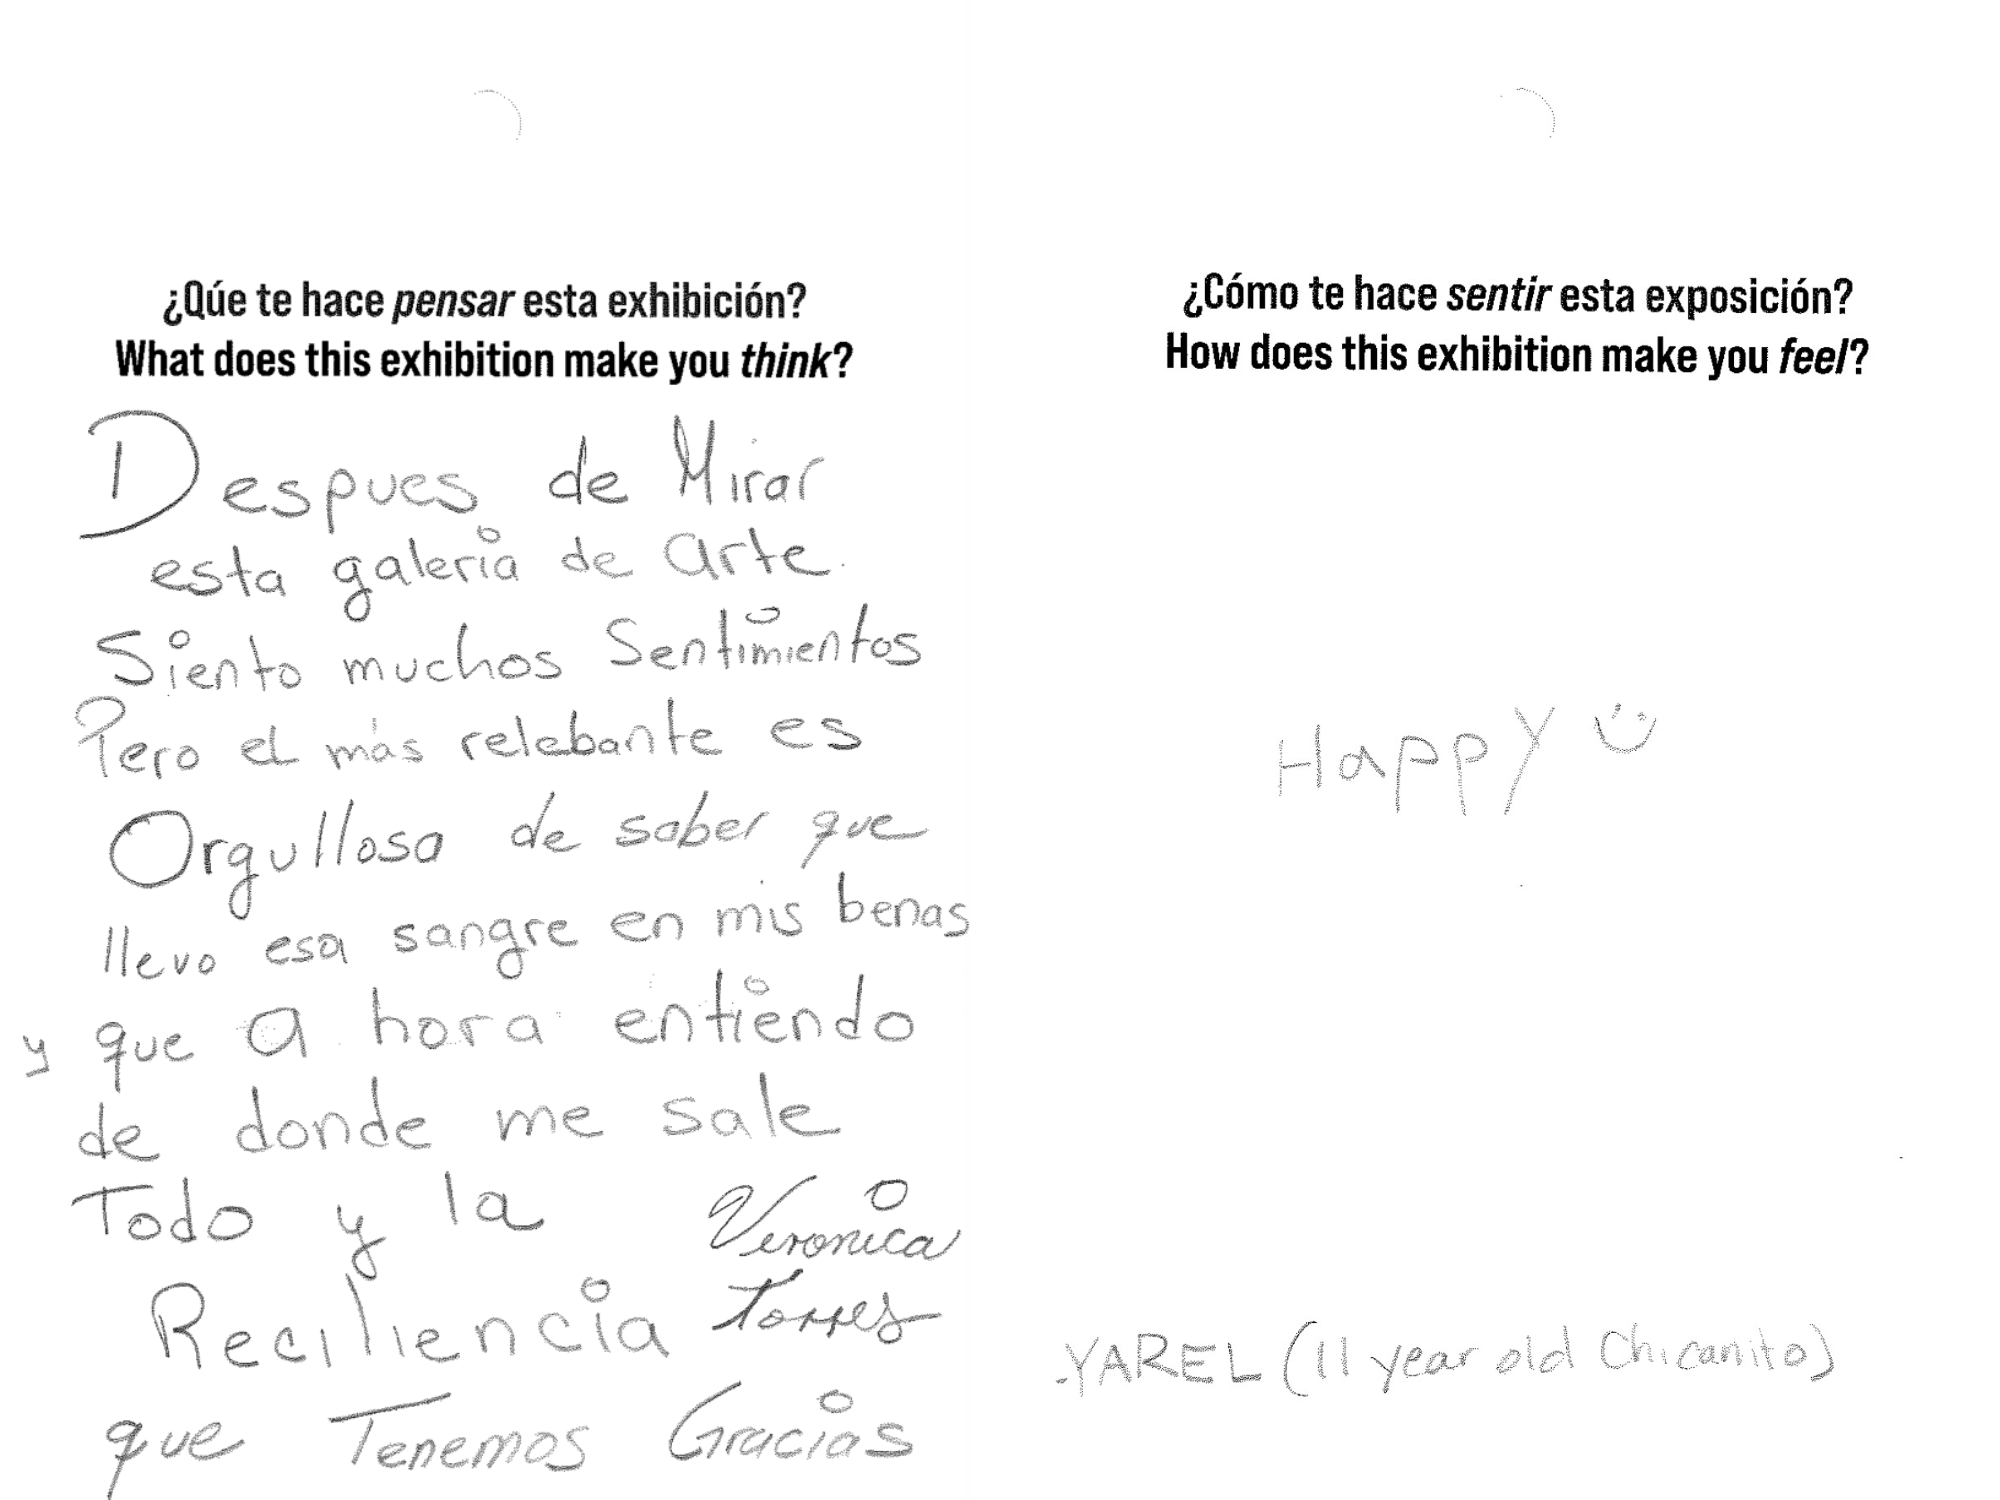 ¿Qúe te hace pensar esta exhibición?
What does this exhibition make you think?
Despues de Mirar
esta galeria de arte.
Siento muchos Sentimientos
Pero el más relebante es
Orgullosa de saber que
llevo esa sangre en mis benas
y que a hora entiendo
de donde me sale
Todo y la
Reciliencia
que Tenemos Gracias
Veronica
Torres
¿Cómo te hace sentir esta exposición?
How does this exhibition make you feel?
Happy
-YAREL (11 year old Chicanito)